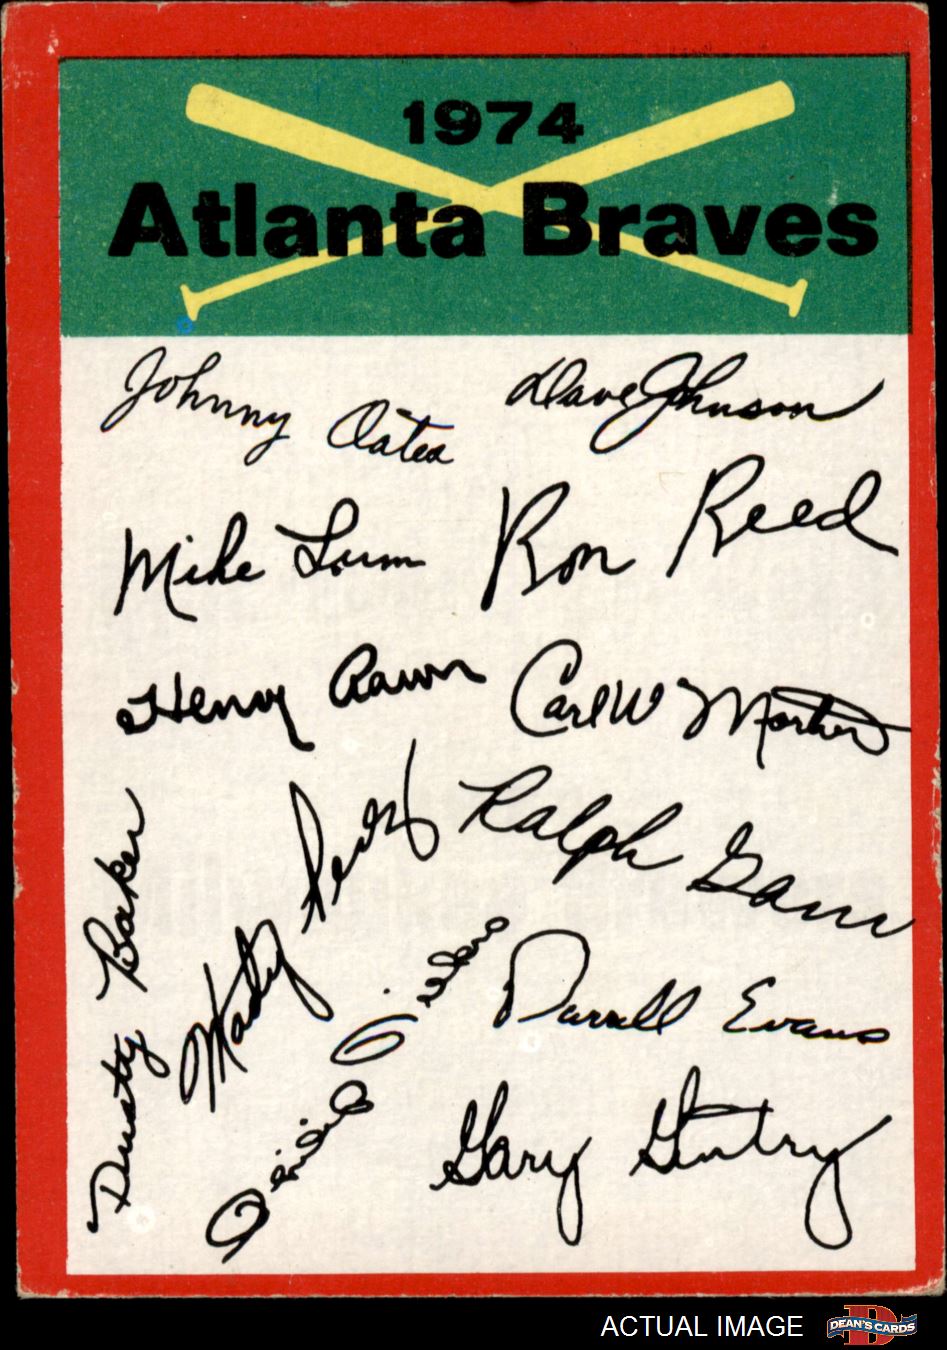 1974
Atlanta Braves
Johnny Oates
Dave Johnson
Mike Lum
Ron Reed
Henry Aaron
Carl W Morton
Dusty Baker
Marty Perez
Ralph Garr
Darrell Evans
Gary Gentry
ACTUAL IMAGE
DEAN'S CARDS